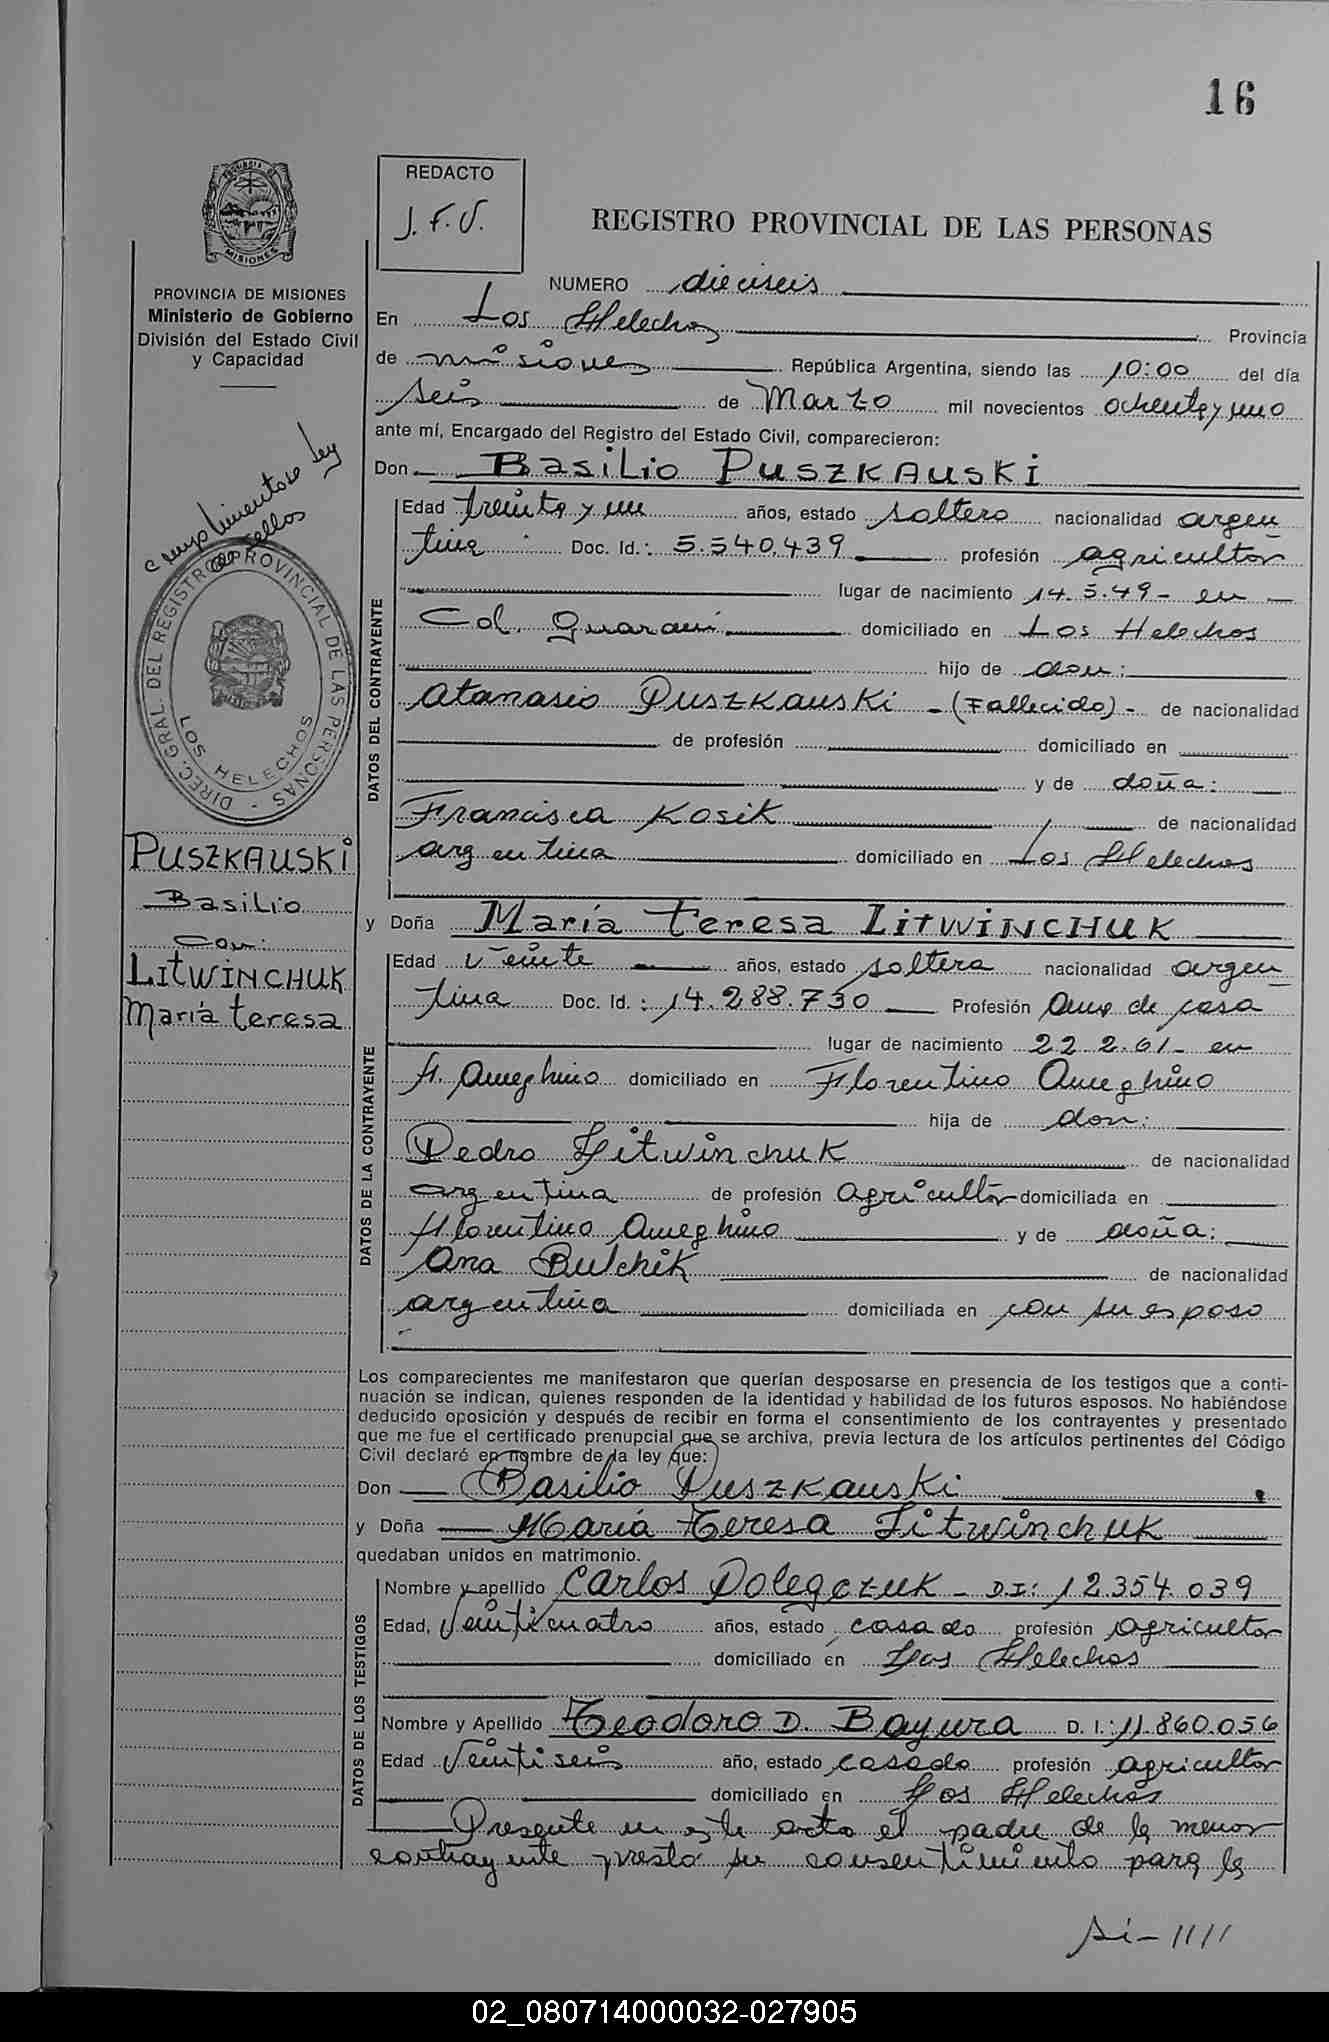 16
REDACTO
J.F.V.
REGISTRO PROVINCIAL DE LAS PERSONAS
MISIONES
PROVINCIA DE MISIONES
Ministerio de Gobierno
División del Estado Civil
y Capacidad
NUMERO dieciseis
En Los Helechos Provincia
de misiones República Argentina, siendo las 10:00 del día
seis de Marzo mil novecientos ochenta y uno
ante mí, Encargado del Registro del Estado Civil, comparecieron:
Don Basilio PUSZKAUSKI
cumplimentose ley
de sellos
DIREC. GRAL. DEL REGISTRO PROVINCIAL DE LAS PERSONAS -
LOS HELECHOS
PUSZKAUSKI
Basilio
con:
LITWINCHUK
María teresa
DATOS DEL CONTRAYENTE
Edad treinta y un años, estado soltero nacionalidad argen
tina Doc. Id.: 5.540.439 profesión agricultor
lugar de nacimiento 14.5.49- en
Col. Guaraní domiciliado en Los Helechos
hijo de don:
Atanasio Puszkauski - (Fallecido) - de nacionalidad
de profesión domiciliado en
y de doña:
Francisca Kosik de nacionalidad
argentina domiciliado en Los Helechos
y Doña María teresa LITWINCHUK
DATOS DE LA CONTRAYENTE
Edad Veinte años, estado soltera nacionalidad argen
tina Doc. Id.: 14.288.730 Profesión Ama de casa
lugar de nacimiento 22.2.61- en
F. Ameghino domiciliado en Florentino Ameghino
hija de don:
Pedro Litwinchuk de nacionalidad
argentina de profesión Agricultor domiciliada en
Florentino Ameghino y de doña:
Ana Bulchik de nacionalidad
argentina domiciliada en con su esposo
Los comparecientes me manifestaron que querían desposarse en presencia de los testigos que a conti-
nuación se indican, quienes responden de la identidad y habilidad de los futuros esposos. No habiéndose
deducido oposición y después de recibir en forma el consentimiento de los contrayentes y presentado
que me fue el certificado prenupcial que se archiva, previa lectura de los artículos pertinentes del Código
Civil declaré en nombre de la ley que:
Don Basilio Puszkauski
y Doña María Teresa Litwinchuk
quedaban unidos en matrimonio.
DATOS DE LOS TESTIGOS
Nombre y apellido Carlos Dolegczuk - D.I: 12.354.039
Edad, Veinticuatro años, estado casado profesión Agricultor
domiciliado en Los Helechos
Nombre y Apellido Teodoro D. Bayura D. I.: 11.860.056
Edad Veintiseis año, estado casado profesión agricultor
domiciliado en Los Helechos
Presente en este acto el padre de la menor
contrayente presta su consentimiento para la
Si-////
02_080714000032-027905